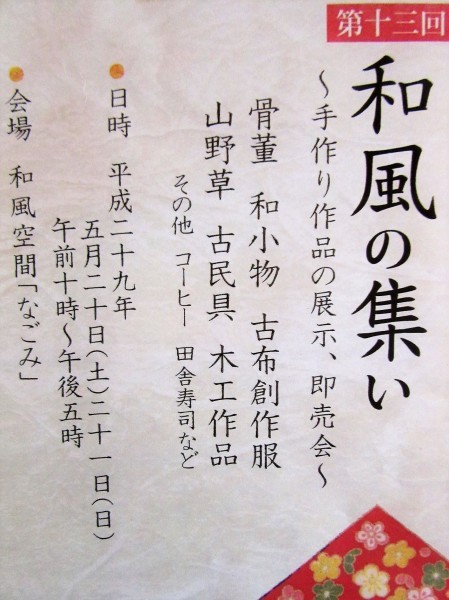 第十三回
和風の集い
～手作り作品の展示、即売会～
骨董 和小物 古布創作服
山野草 古民具 木工作品
その他 コーヒー 田舎寿司など
日時 平成二十九年
五月二十日(土)二十一日(日)
午前十時～午後五時
会場 和風空間「なごみ」